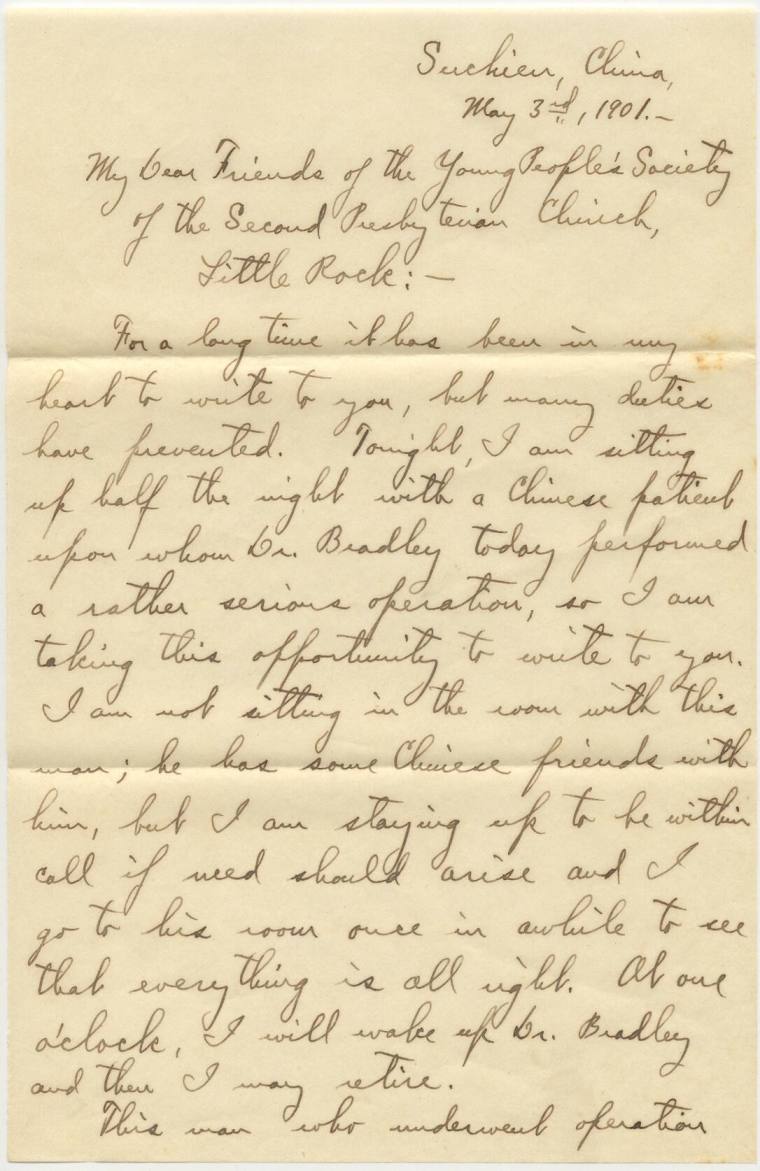 Suchien, China,
May 3rd, 1901.—
My Dear Friends of the Young People's Society
of the Second Presbyterian Church,
Little Rock:—
For a long time it has been in my
heart to write to you, but many duties
have prevented. Tonight, I am sitting
up half the night with a Chinese patient
upon whom Dr. Bradley today performed
a rather serious operation, so I am
taking this opportunity to write to you.
I am not sitting in the room with this
man; he has some Chinese friends with
him, but I am staying up to be within
call if need should arise and I
go to his room once in awhile to see
that everything is all right. At one
o'clock, I will wake up Dr. Bradley
and then I may retire.
This man who underwent operation